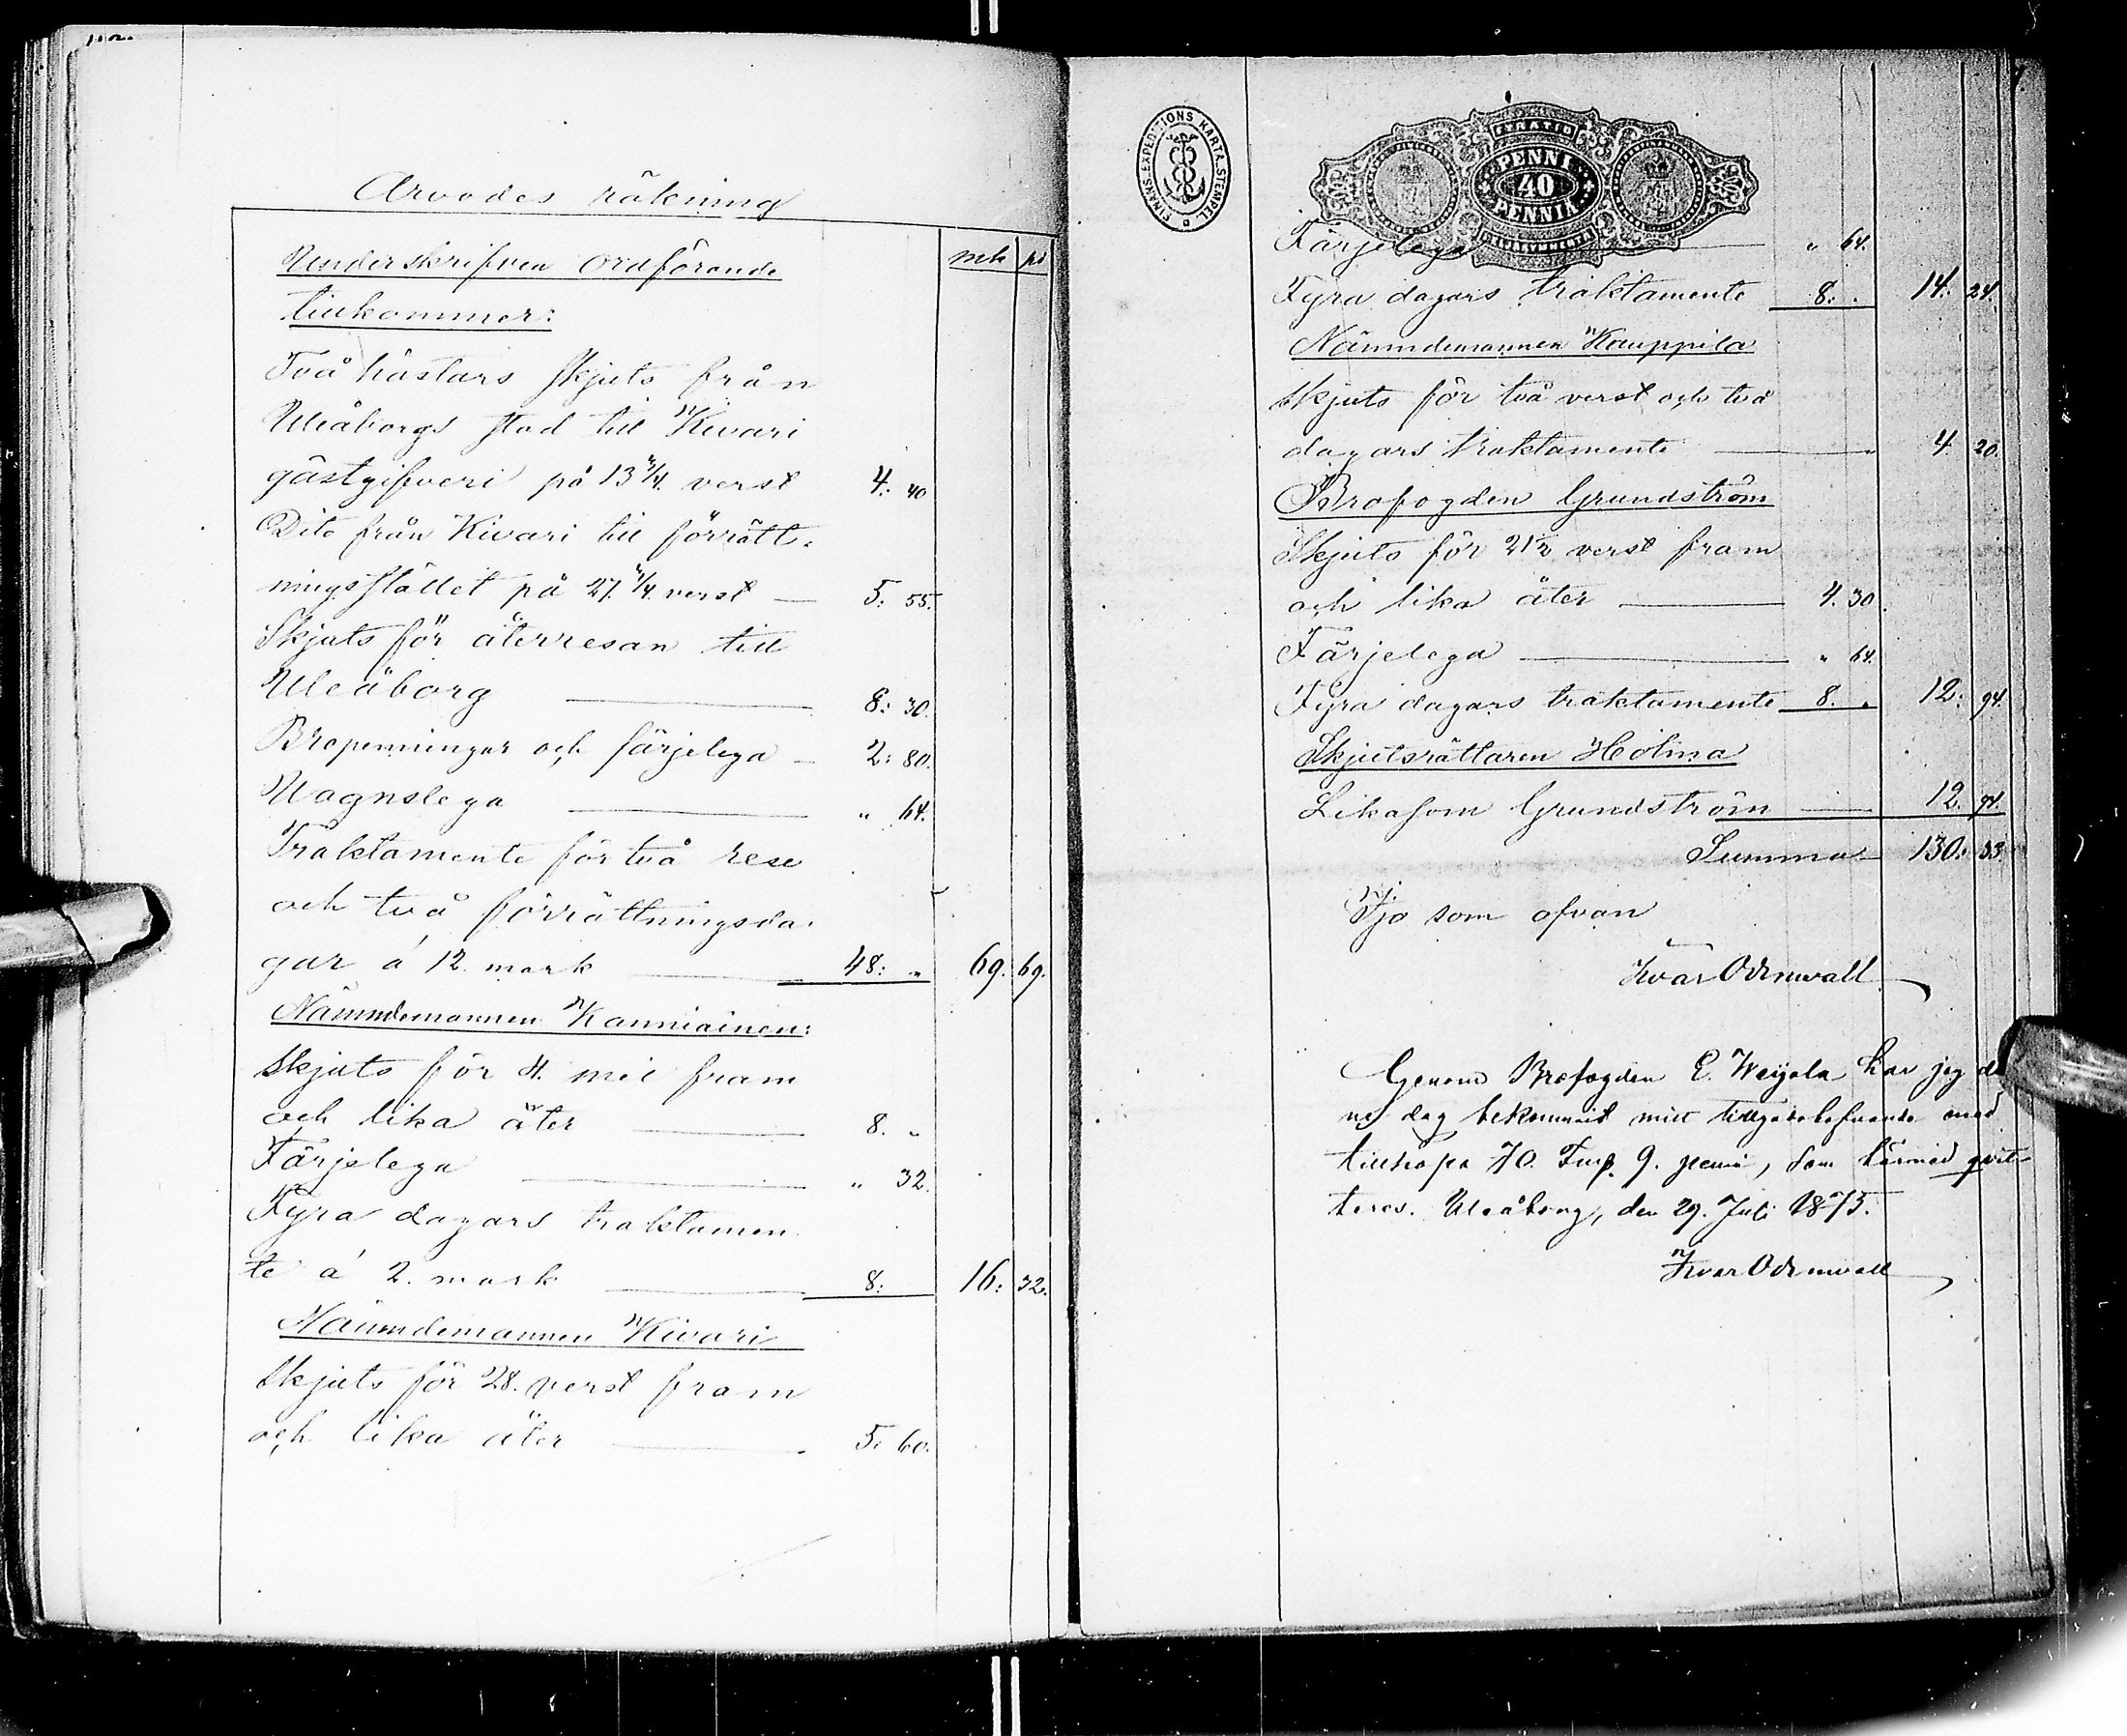 Arvodes räkning
mk pi
Underskrifven Ordförande
tillkommer:
Två hästars skjuts från
Uleåborgs stad till Kivari
gästgifveri på 13 1/4. verst 4: 40
Dito från Kivari till förrätt-
ningsstället på 27. 1/4. verst — 5: 55.
Skjuts för återresan till
Uleåborg — 8: 30.
Bropenningar och färjelega — 2: 80.
Wagnslega — " 64.
Traktamente för två rese
och två förrättningsda-
gar á 12. mark — 48: " 69. 69.
Nämndemannen Kanniainen:
skjuts för 4. mil fram
och lika åter — 8. "
Färjelega — " 32.
Fyra dagars traktamen
te á 2. mark — 8: 16: 32.
Nämndemannen Kivari
skjuts för 28. verst fram
och lika åter — 5: 60.
FINANS. EXPEDITIONS KARTA. STEMPEL.
FYRATIO
PENNI
40
PENNIÄ
Färjelega — " 64.
Fyra dagars traktamente 8: . 14: 24.
Nämndemannen Kauppila
skjuts för två verst och två
dagars traktamente — " 4. 20.
Brofogden Grundström
Skjuts för 21 1/2 verst fram
och lika åter — 4. 30.
Färjelega — " 64.
Fyra dagars traktamente 8. " 12: 94.
Skjutsrättaren Holma
Likasom Grundström — 12. 94.
Summa 130: 33
Tjo som ofvan
Ivar Odenwall
Genom Brofogden E. Weijola har jag de
na dag bekommit mitt tillgodohafvande med
tillhopa 70. Fmk. 9. penni, som härmed qvit-
teres. Uleåborg, den 29. Juli 1875.
Ivar Odenwall